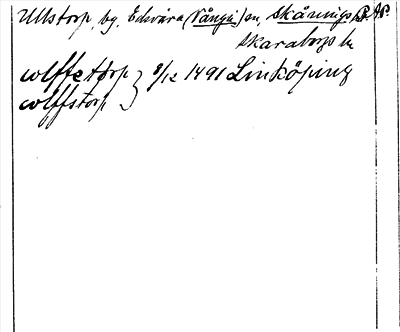 Ullstorp, by, Edsvära (Vånga) sn, Skånings
Skaraborgs l.
wlffetorp } 9/12 1491 Linköping
wlffstorp